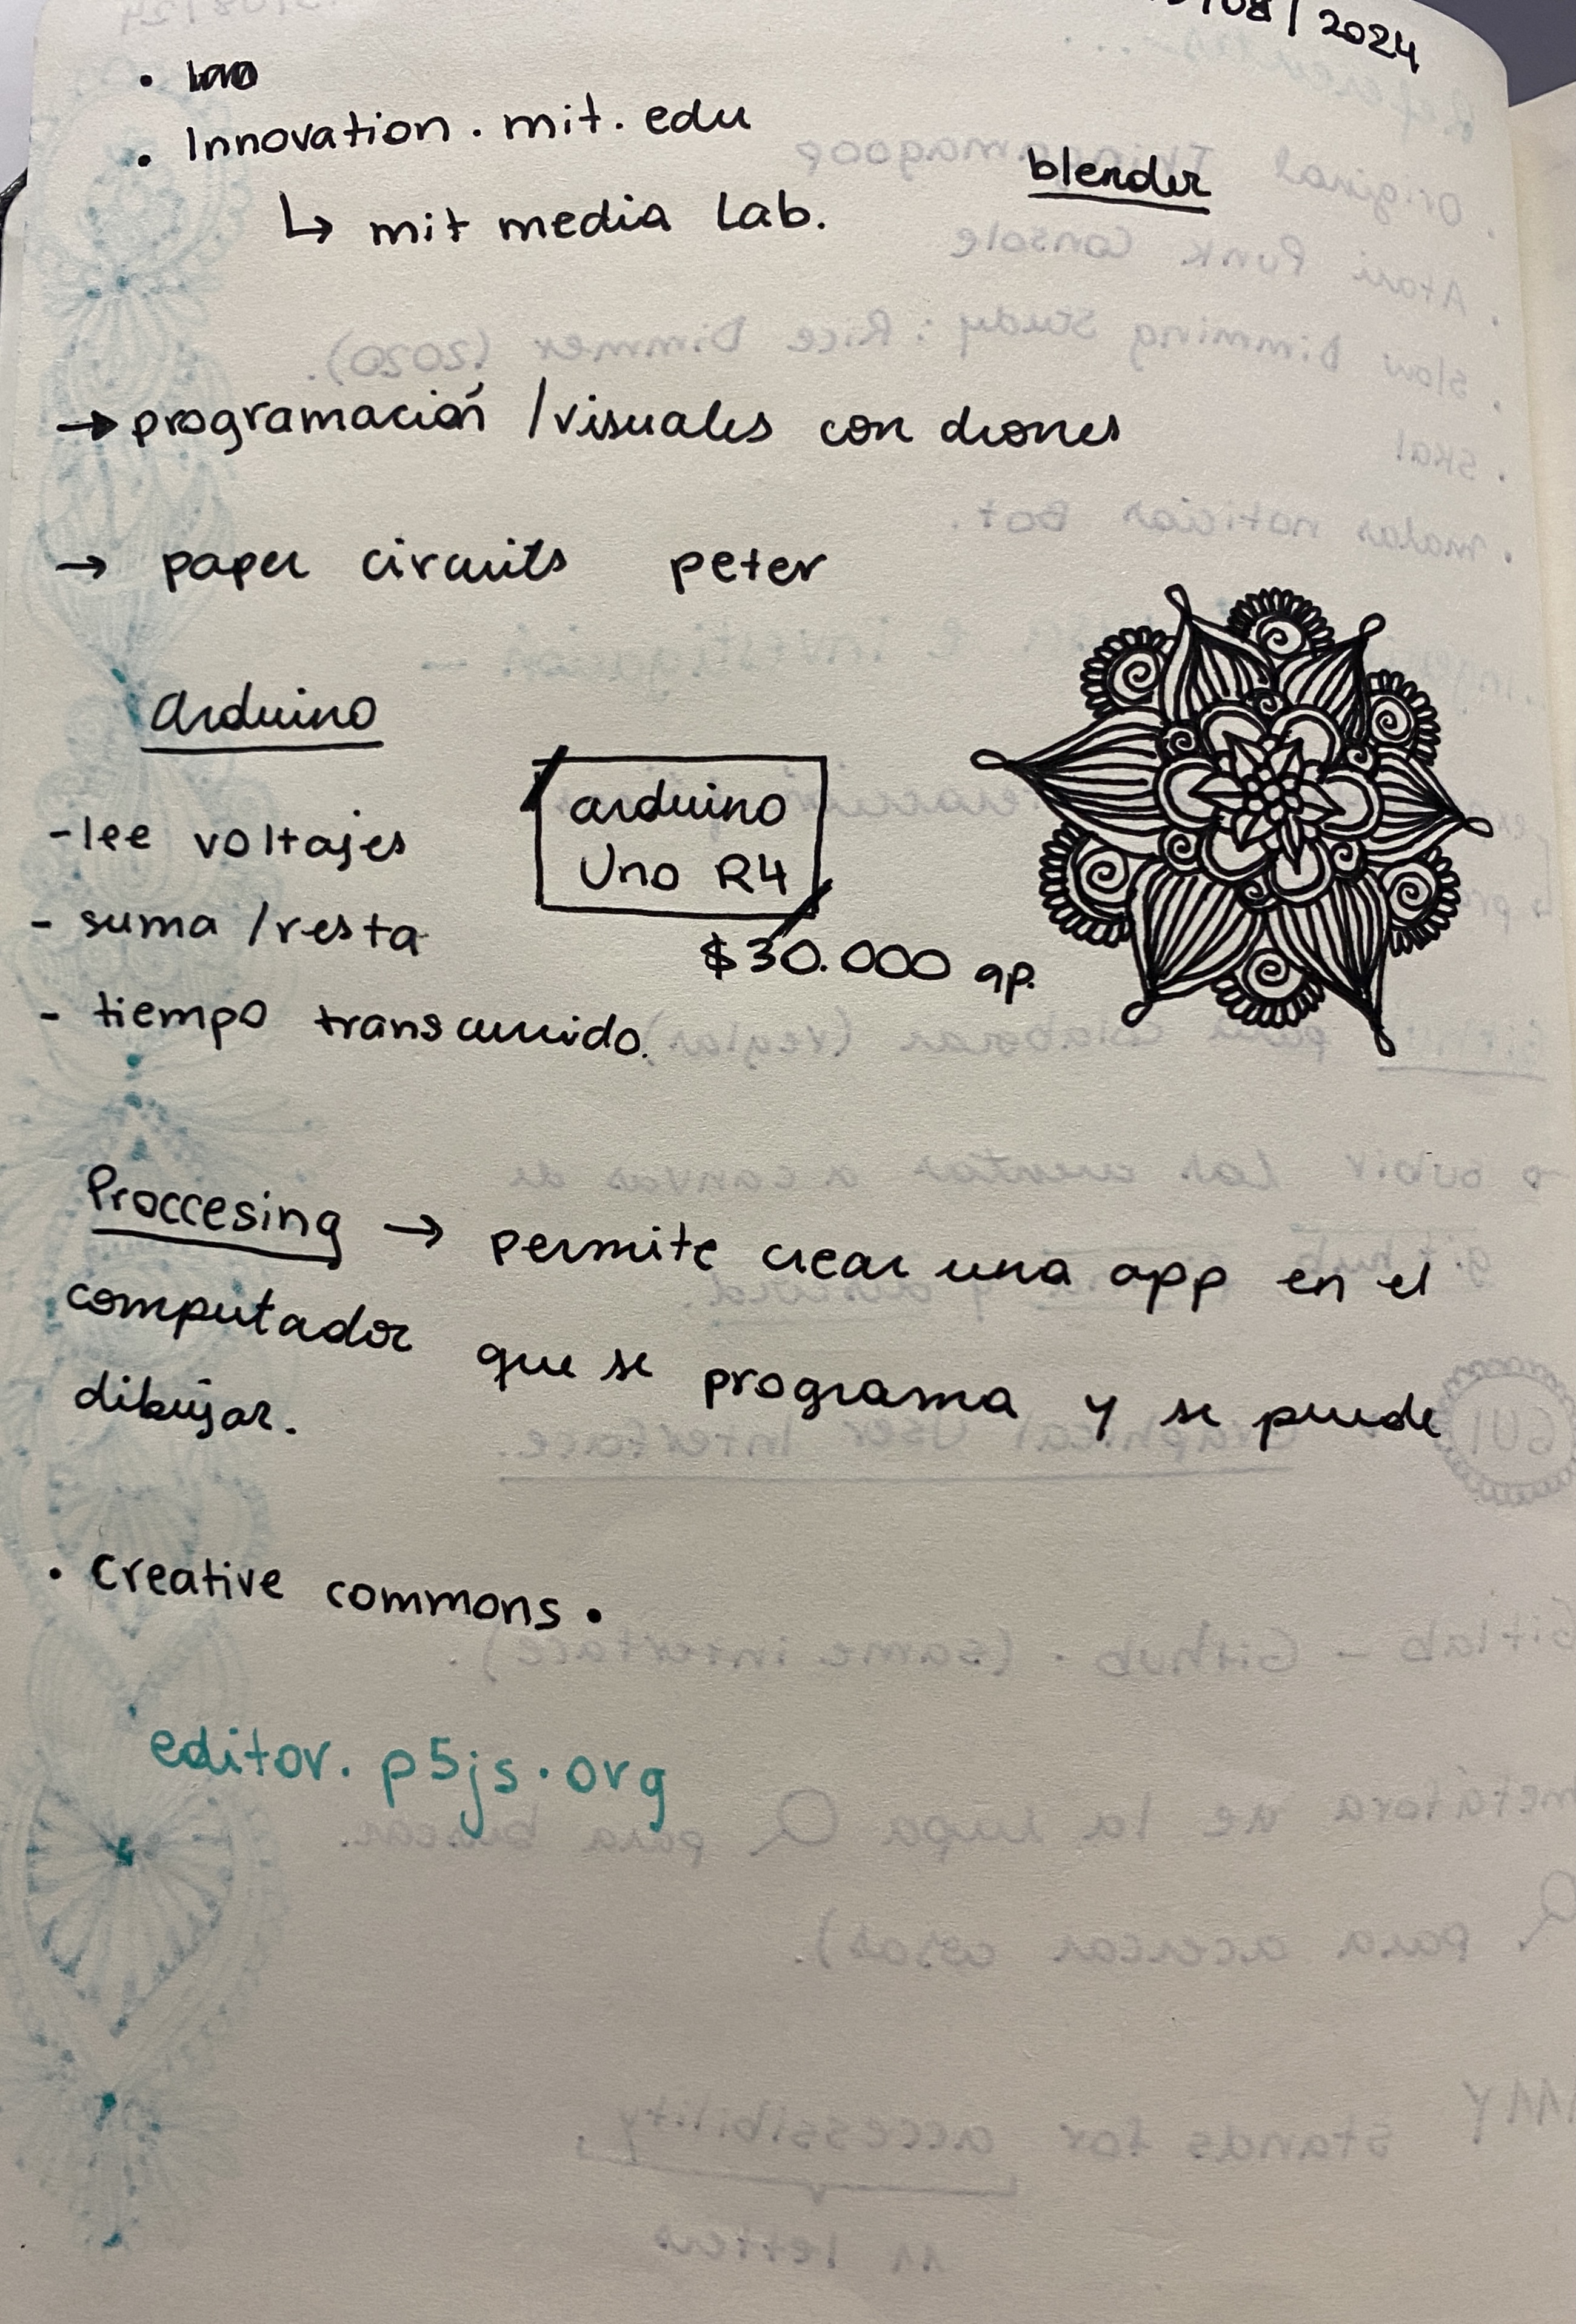 /08/2024
. Innovation.mit.edu
↳ mit media Lab.
blender
→ programación /visuales con drones
→ paper circuits peter
arduino
arduino
Uno R4
- lee voltajes
- suma /resta
$30.000 ap.
- tiempo transcurrido.
Proccesing → permite crear una app en el
computador que se programa y se puede
dibujar.
• creative commons.
editor.p5js.org